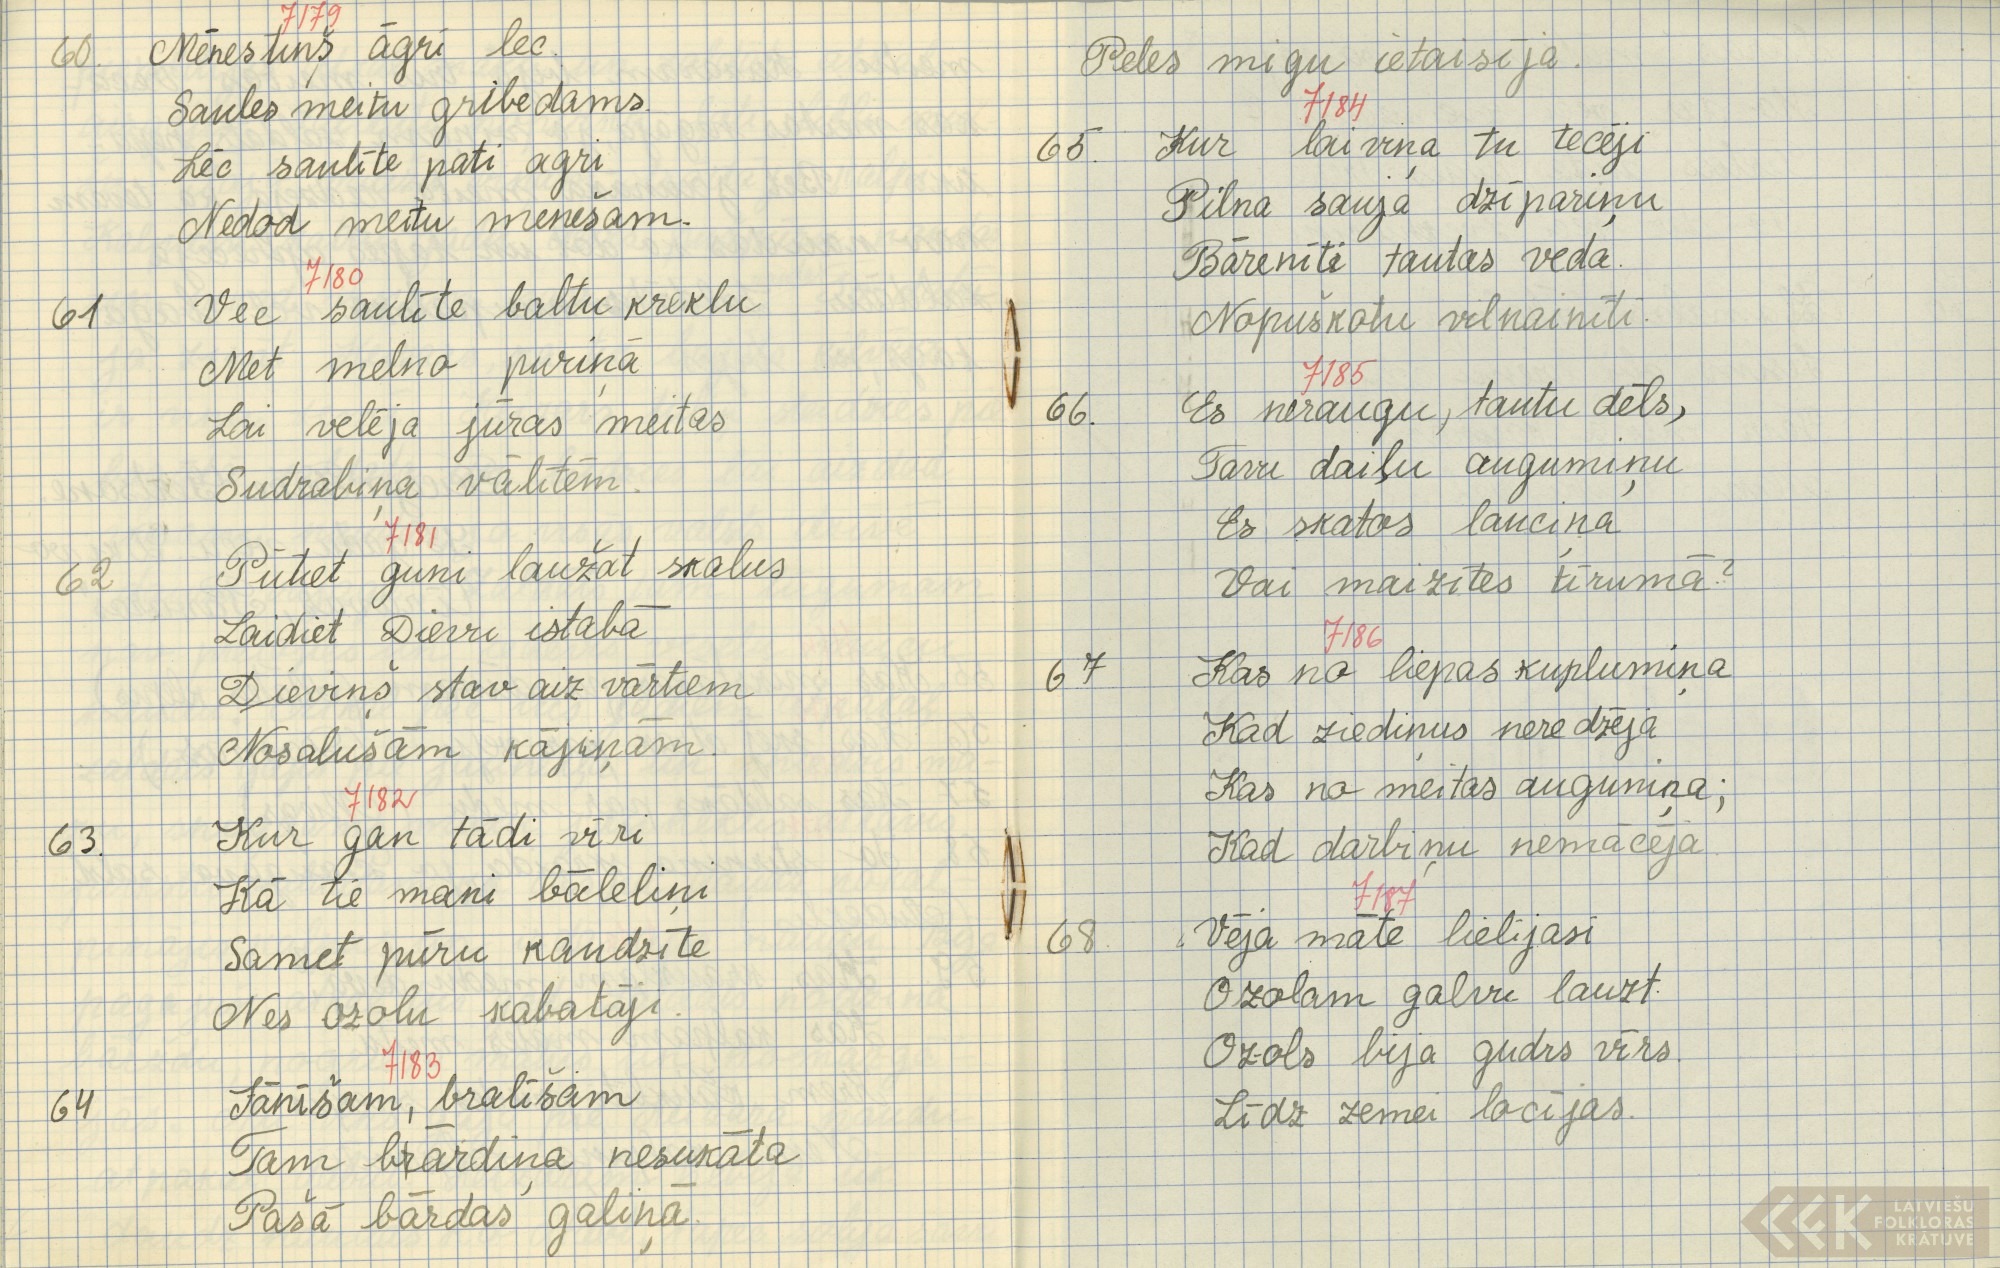 7179
60. Mēnestiņš āgri lec.
Saules meitu gribēdams.
Lēc saulīte pati agri
Nedod meitu menešam.
7180
61 Vec saulīte baltu kreklu
Met melno puriņā
Lai velēja jūras meitas
Sudrabiņa vālītēm.
7181
62 Pūtiet guni laužat skalus
Laidiet Dievu istabā
Dieviņš stāv aiz vārtiem
Nosalušām kājiņām.
7182
63. Kur gan tādi vīri
Kā tie mani bāleliņi
Samet pūru kaudzīte
Nes ozolu kabatāji.
7183
64 Jānīšam, bralīšam
Tam brārdiņa nesukāta
Pašā bārdas galiņā.
Peles migu ietaisīja.
7184
65. Kur laiviņa tu tecēji
Pilna saujā dzīpariņu
Bārenīti tautas veda.
Nopuškotu vilnainīti.
7185
66. Es neraugu, tautu dēls,
Tavu daiļu augumiņu
Es skatos lauciņa
Vai maizītes tīrumā?
7186
67 Kas no liepas kuplumiņa
Kad ziediņus neredzēja
Kas no meitas auguniņa;
Kad darbiņu nemācēja
7187
68. Vēja māte lielījasi
Ozolam galvu lauzt.
Ozols bija gudrs vīrs.
Līdz zemei locījas.
LATVIEŠU
FOLKLORAS
KRĀTUVE